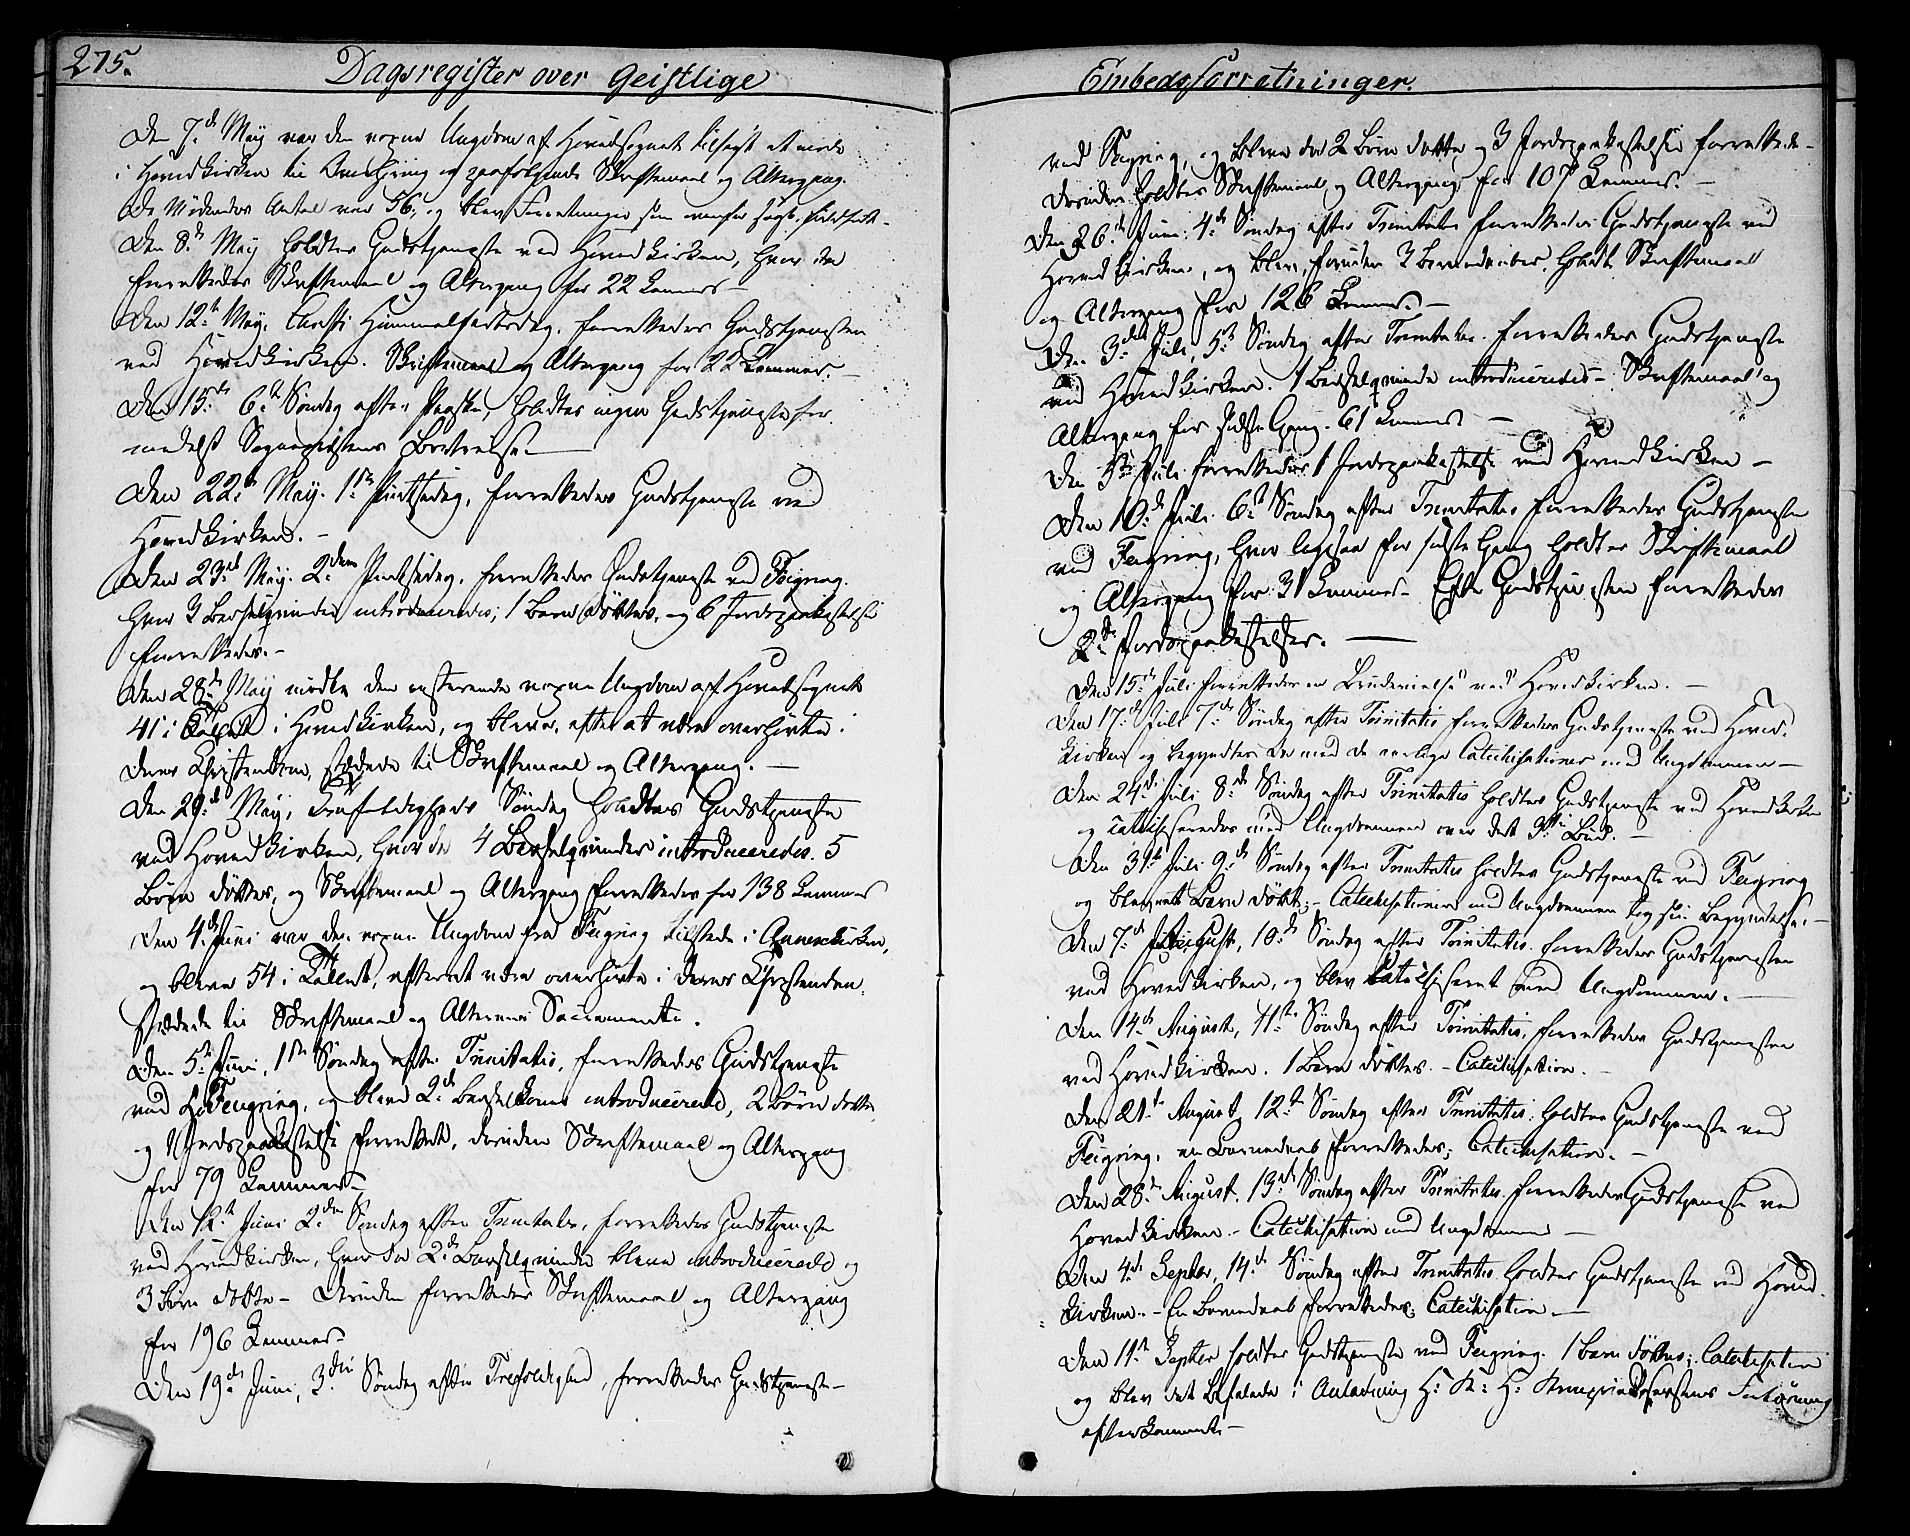 275.
Dagsregister over Geistlige
Den 7.de May var den voxne Ungdom af Hovedsognet tilsagt at møde
i Hovedkirken til Overhöring og paafölgende Skriftemaal og Altergang.
De Mødendes Antal var 56, og blev Forretningen som ovenfor sagt, fuldført.
Den 8.de May holdtes Gudstjeneste ved Hovedkirken, hvor der
forrettedes Skriftemaal og Altergang for 22 Lemmer –
Den 12.te May, Christi Himmelfartsdag, forrettedes Gudstjenesten
ved Hovedkirken. Skriftemaal og Altergang for 22 Lemmer. –
Den 15.de 6.te Søndag efter Paaske, holdtes ingen Gudstjeneste for
medelst Sognepræstens Bortreise. –
Den 22.de May. 1.ste Pintsedag, forrettedes Gudstjeneste ved
Hovedkirken. –
Den 23.de May. 2.den Pintsedag, forrettedes Gudstjeneste ved Feigring.
hvor 3 Barselqvinder introduceredes; 1 Barn döbtes, og 6 Jordspaakastelser
forrettedes. –
Den 28.de May mødte den resterende voxne Ungdom af Hovedsognet
41 i Tallet i Hovedkirken, og bleve, efter at være overhörte i
deres Christendom, stædede til Skriftemaal og Altergang. –
Den 29.de May, Trefoldigheds Søndag holdtes Gudstjeneste
ved Hovedkirken, hvor de 4 Barselqvinder introduceredes. 5
Börn döbtes, og Skriftemaal og Altergang forrettedes for 138 Lemmer
Den 4.de Juni var den voxne Ungdom fra Feigring tilstede i Annexkirken,
og bleve 54 i Tallet, efter at være overhörte i deres Christendom,
stædede til Skriftemaal og Alterens Sacramente.
Den 5.te Juni, 1.ste Søndag efter Trinitatis, forrettedes Gudstjeneste
ved Feigring, og bleve 2.de Barselkoner introducerede, 2 Börn döbte,
og 1 Jordspaakastelse forrettet, desuden Skriftemaal og Altergang
for 79 Lemmer –
Den 12.te Juni 2.den Søndag efter Trinitatis, forrettedes Gudstjeneste
ved Hovedkirken, hvor der 2.de Barselqvinder bleve introducerede og
3 Börn döbte – Desuden forrettedes Skriftemaal og Altergang
for 196 Lemmer –
Den 19.de Juni, 3.die Søndag efter Trefoldighed, forrettedes Gudstjeneste –
Embedsforretninger.
ved Feigring, og bleve der 2 Börn döbte og 3 Jordspaakastelser forrettede –
desuden holdtes Skriftemaal og Altergang for 107 Lemmer. –
Den 26.de Juni, 4.de Søndag efter Trinitatis forrettedes Gudstjeneste ved
Hovedkirken, og blev, foruden 3 Barnedaaber, holdt Skriftemaal
og Altergang for 126 Lemmer. –
Den 3.die Juli, 5.te Søndag efter Trinitatis. forrettedes Gudstjeneste
ved Hovedkirken. 1 Barselqvinde introduceredes – Skriftemaal og
Altergang for sidste Gang. 61 Lemmer –
Den 5.te Juli forrettedes 1 Jordspaakastelse ved Hovedkirken –
Den 10.de Juli 6.te Søndag efter Trinitatis forrettedes Gudstjeneste
ved Feigring, hvor ligesaa for sidste Gang holdtes Skriftemaal
og Altergang for 31 Lemmer – Efter Gudstjenesten forrettedes
2.de Jordspaakastelser. –
Den 15.de Juli forrettedes en Brudevielse ved Hovedkirken. –
Den 17.de Juli 7.de Söndag efter Trinitatis forrettedes Gudstjeneste ved Hoved-
kirken og begyndtes der med de aarlige Catechisationer med Ungdommen –
Den 24.de Juli 8.de Söndag efter Trinitatis holdtes Gudstjeneste ved Hovedkirken
og catechiseredes med Ungdommen over det 3.die Bud. –
Den 31.te Juli 9.de Søndag efter Trinitatis holdtes Gudstjeneste ved Feigring
og blev et Barn döbt; – Catechisationen med Ungdommen tog sin Begyndelse. –
Den 7.de August, 10.de Söndag efter Trinitatis. forrettedes Gudstjenesten
ved Hovedkirken, og blev Catechiseret med Ungdommen. –
Den 14.de August, 11.te Söndag efter Trinitatis, forrettedes Gudstjenesten
ved Hovedkirken. 1 Barn döbtes. – Catechisation. –
Den 21.te August, 12.te Søndag efter Trinitatis. holdtes Gudstjeneste ved
Feigring, en Barnedaab forrettedes; Catechisation. –
Den 28.de August, 13.de Søndag efter Trinitatis. forrettedes Gudstjeneste ved
Hovedkirken. – Catechisation med Ungdommen –
Den 4.de Septbr, 14.de Söndag efter Trinitatis holdtes Gudstjeneste ved Hoved-
kirken. – En Barnedaab forrettedes; Catechisation. –
Den 11.te Septbr holdtes Gudstjeneste ved Feigring. 1 Barn döbtes; Catechisation
og blev det befalede i Anledning H: K: H: Kronprindsessens
efterkommet –